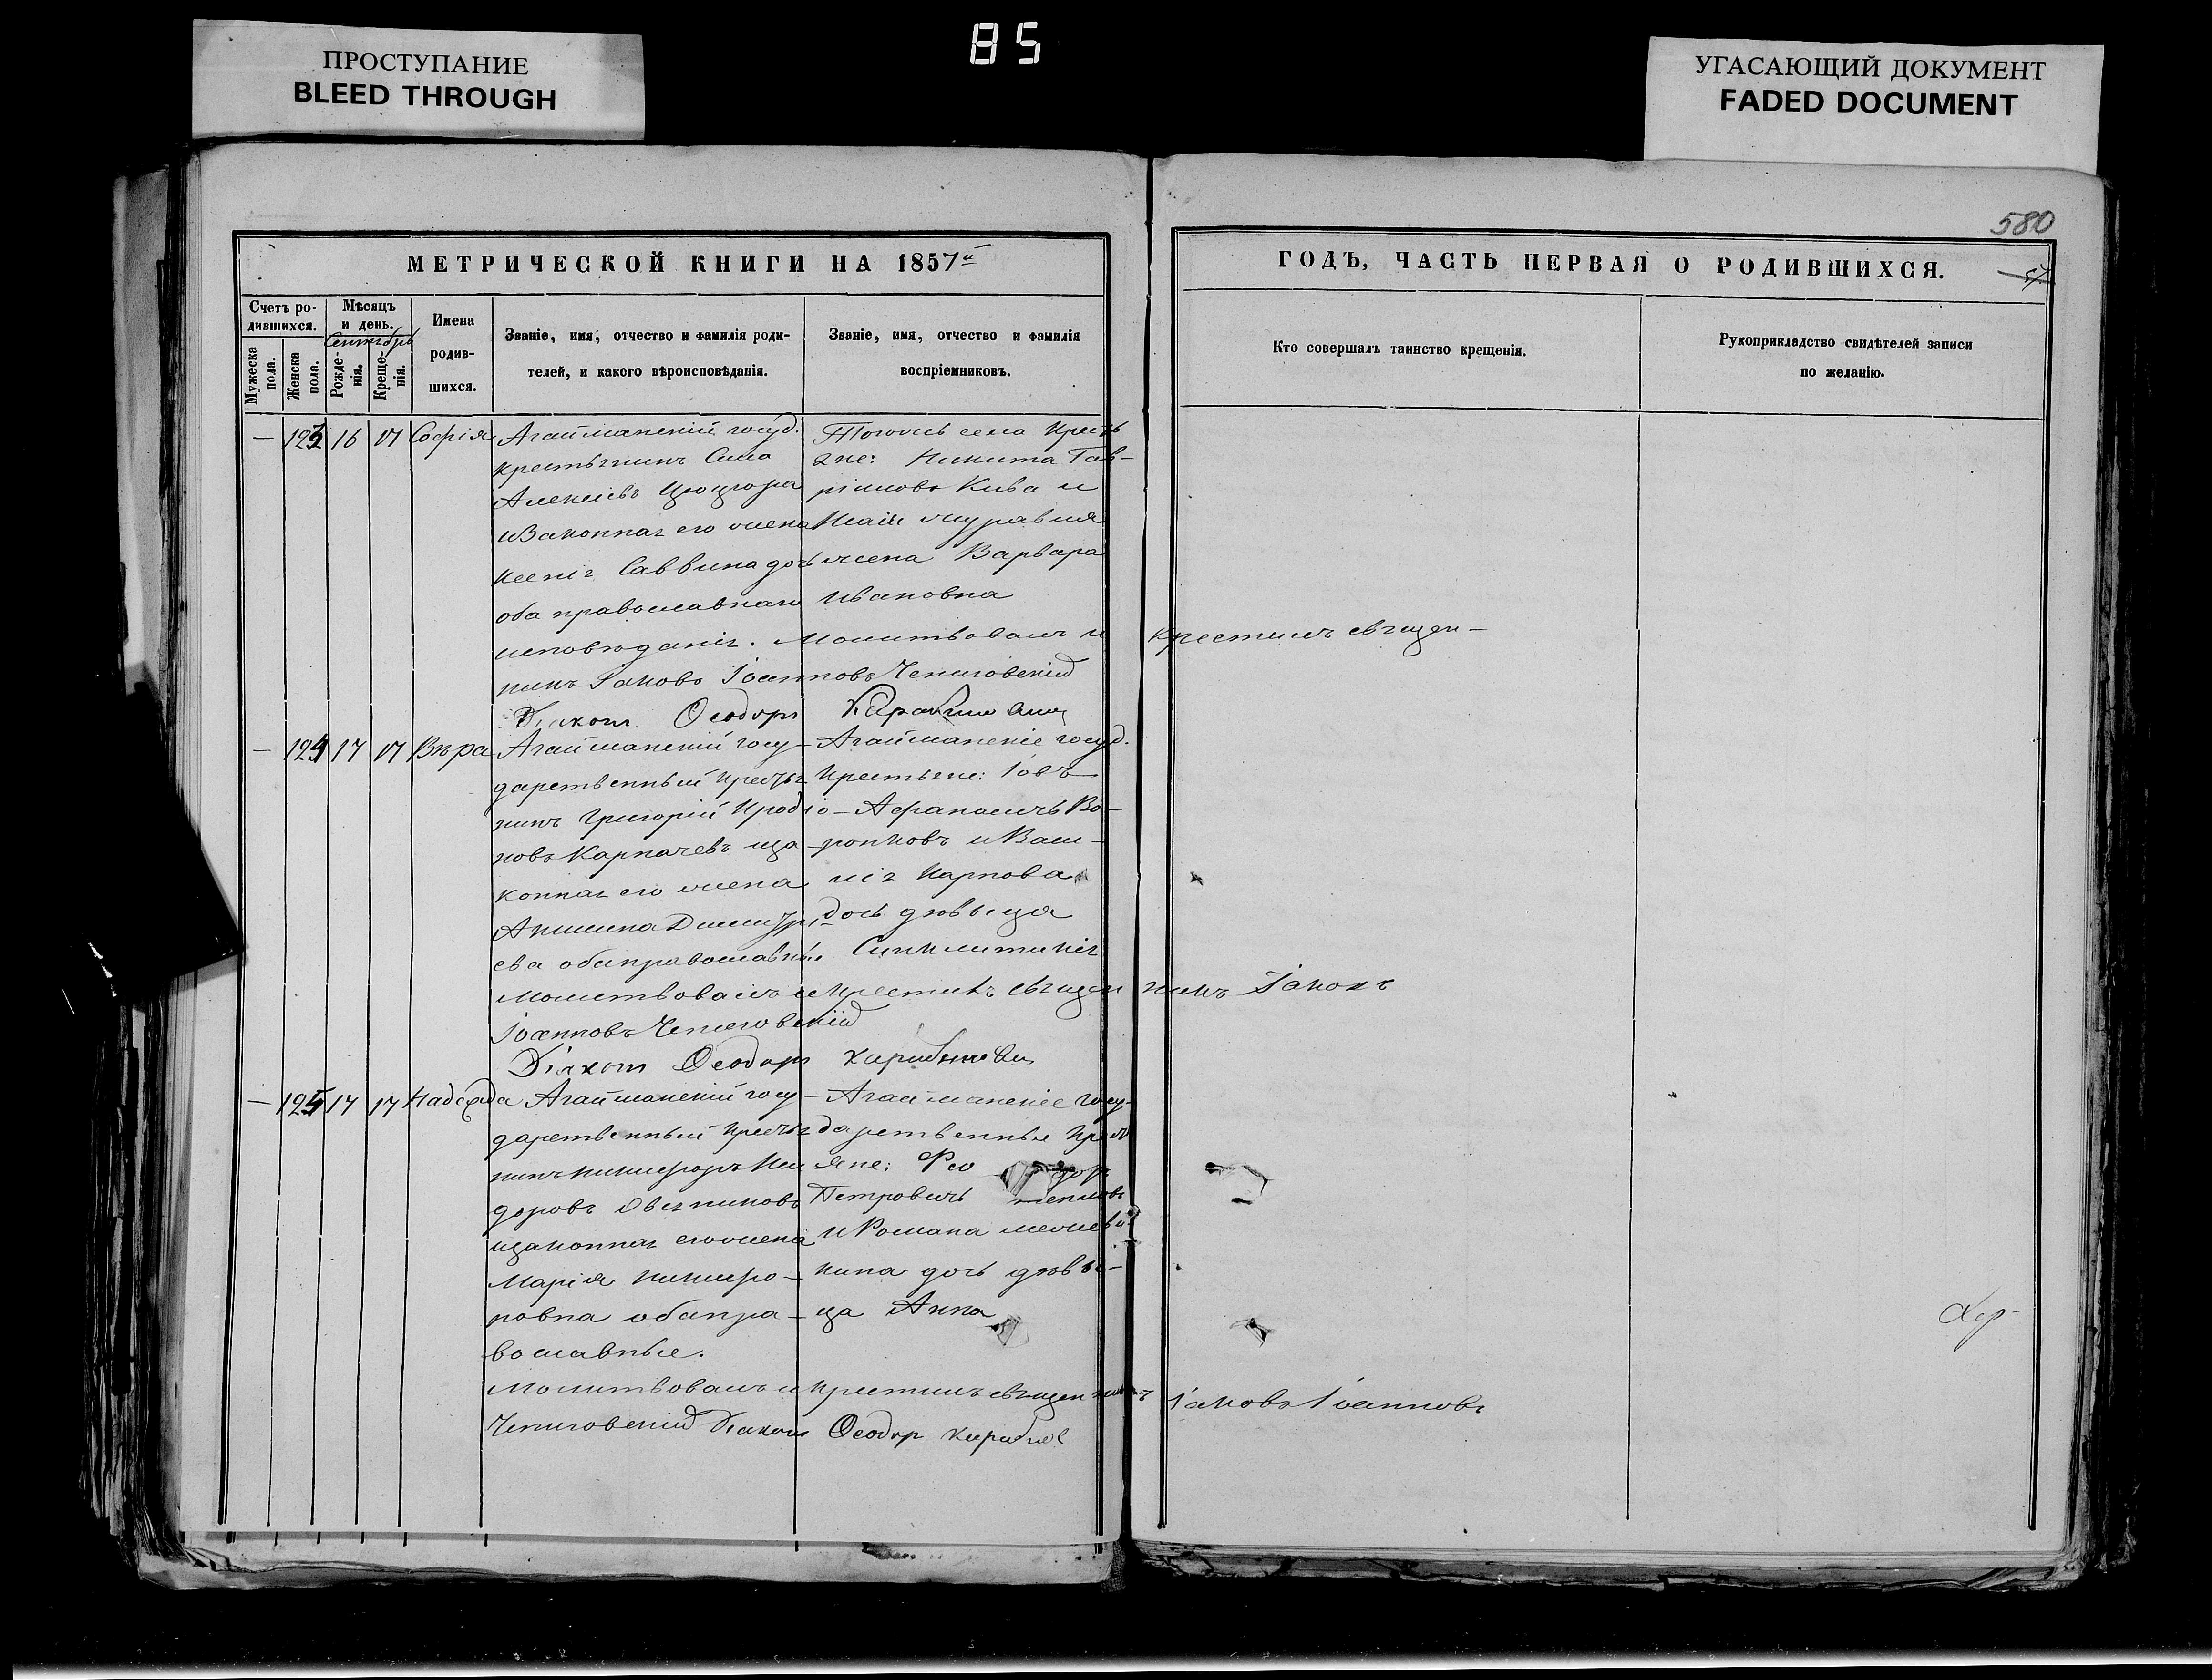 85
ПРОСТУПАНИЕ
BLEED THROUGH
УГАСАЮЩИЙ ДОКУМЕНТ
FADED DOCUMENT
580
МЕТРИЧЕСКОЙ КНИГИ НА 1857й
Счетъ ро-
дившихся.
Мужеска
пола.
Женска
пола.
Мѣсяцъ
и день.
Сентябрь
Рожде-
нія.
Креще-
нія.
Имена
родив-
шихся.
Званіе, имя, отчество и фамилія роди-
телей, и какого вѣроисповѣданія.
Званіе, имя, отчество и фамилія
воспріемниковъ.
ГОДЪ, ЧАСТЬ ПЕРВАЯ О РОДИВШИХСЯ.
57
Кто совершалъ таинство крещенія.
Рукоприкладство свидѣтелей записи
по желанію.
— 123 16 17 Софія
Агайманскій госуд.
крестьянинъ Сила
Алексѣевъ
и законная его жена
Ксенія Саввина дочь
оба православнаго
исповѣданія.
Тогожъ села кресть
яне: Никита Гав-
риловъ Кива и
журавля
жена Варвара
Ивановна
Молитвовалъ и крестилъ священ-
никъ Іаковъ Іоанновъ Чепиговскій
Діаконъ Ѳеодоръ
— 124 17 17 Вѣра
Агайманскій госу-
дарственный кресть
нинъ Григорій Иродіо-
новъ Карпачевъ и за
конная его жена
Акилина Димитрі-
ева оба православные
Агайманскіе госуд.
крестьяне: Іовъ
Афанасичъ Во-
ронковъ и Васи-
лія Карпова
дочь дѣвица
Синклитикія
Молитвовалъ и крестилъ священникъ Іаковъ
Іоанновъ Чепиговскій
Діаконъ Ѳеодоръ
— 125 17 17 Надежда
Агайманскій госу-
дарственный кресть
нинъ Никифоръ Иси
доровъ Овсянниковъ
и законная его жена
Марія Никифо-
ровна оба пра-
вославные.
Агайманскіе госу-
дарственные крест
яне: Ѳео доръ
Петровичъ
и Романа
кина дочь дѣви-
ца Анна
Молитвовалъ и крестилъ священникъ Іаковъ Іоанновъ
Чепиговскій Діаконъ Ѳеодоръ